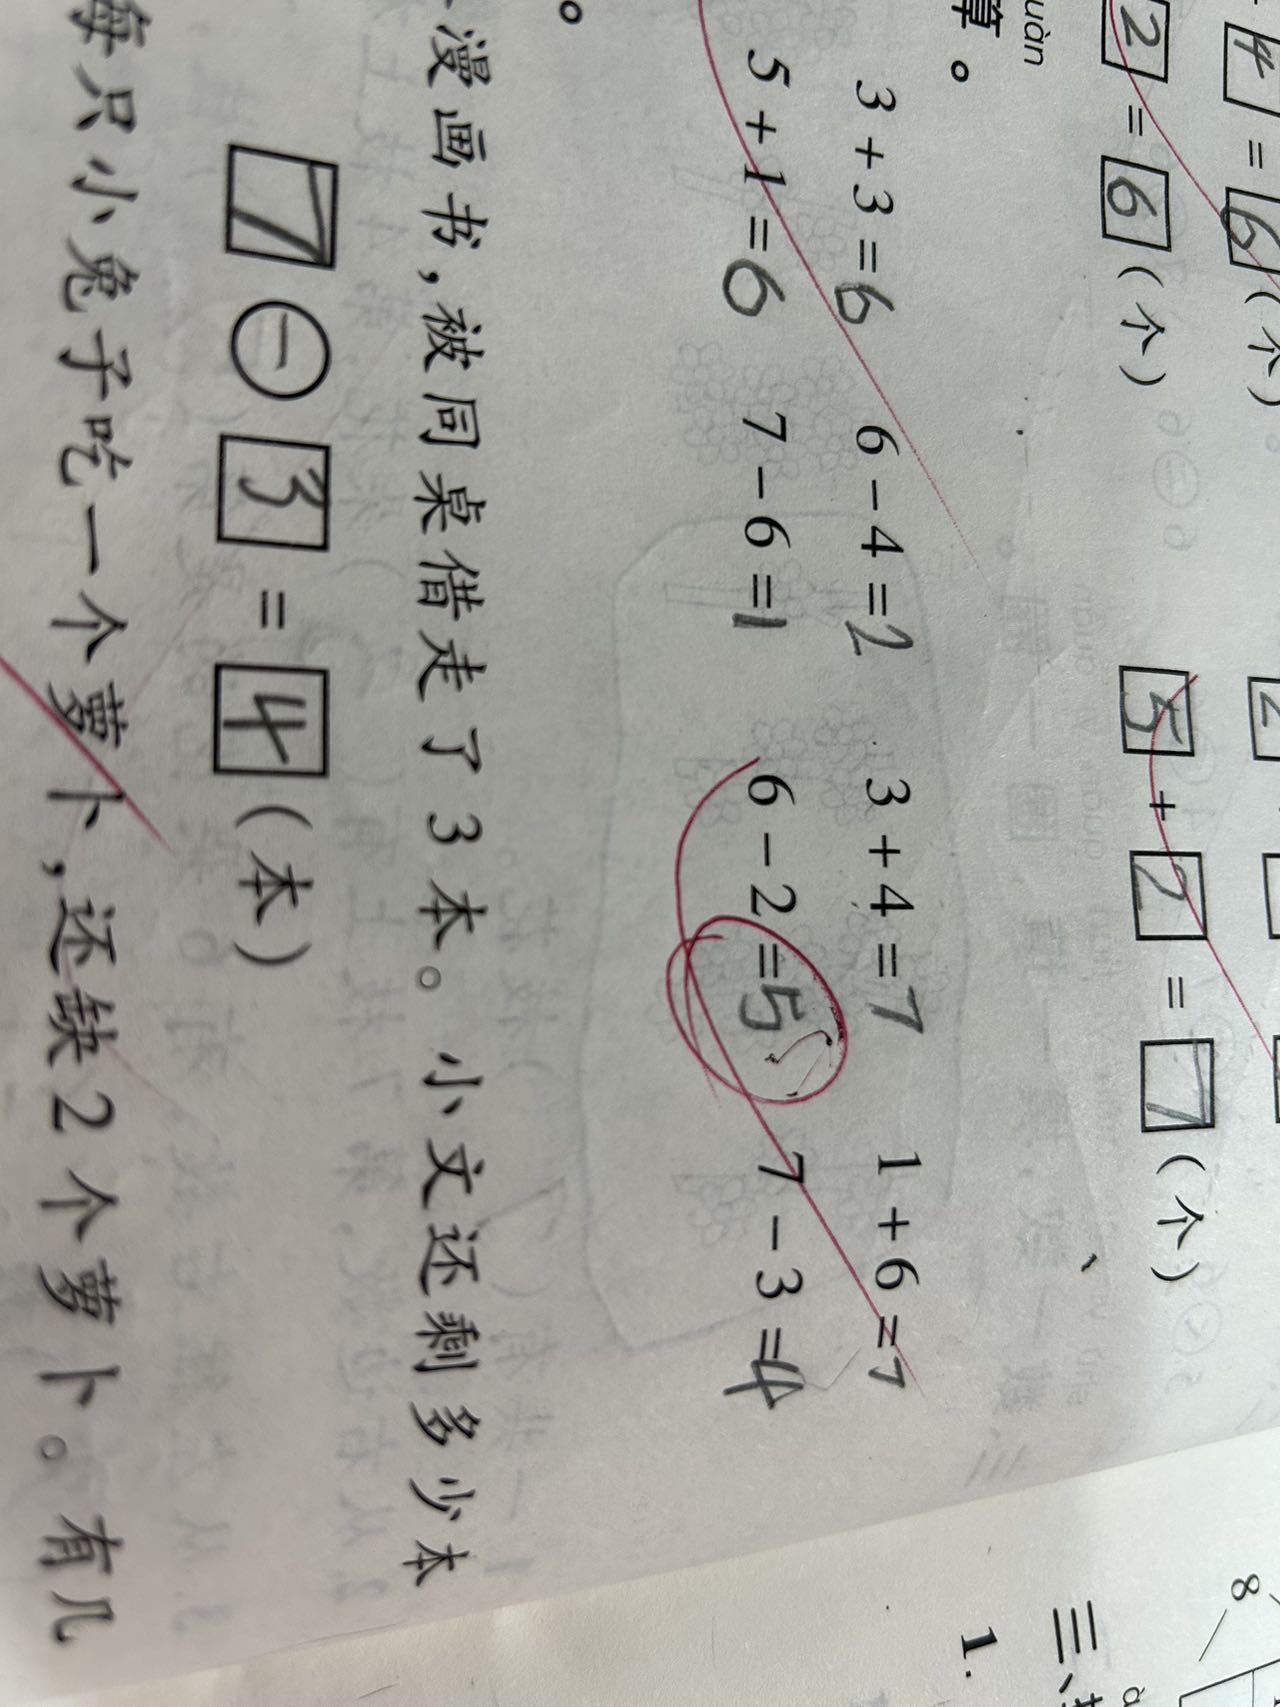 4 = 6 (个)
2 = 6 (个)
5 + 2 = 7 (个)
算。
3 + 3 = 6 6 - 4 = 2 3 + 4 = 7 1 + 6 = 7
5 + 1 = 6 7 - 6 = 1 6 - 2 = 5 7 - 3 = 4
漫画书,被同桌借走了3本。小文还剩多少本
7 - 3 = 4 (本)
每只小兔子吃一个萝卜,还缺2个萝卜。有几
8
三、
1.